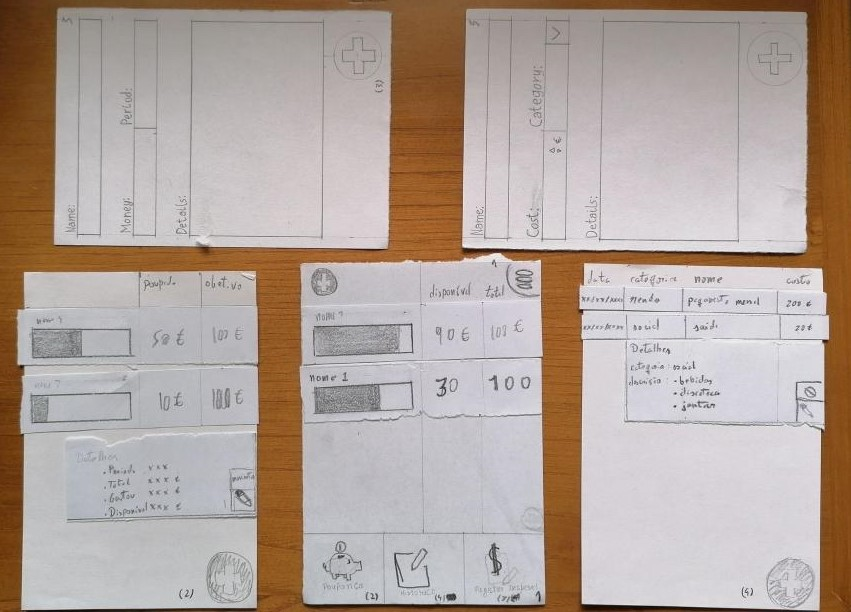 Name:
Money:
Period:
Details:
(3)
5
Name:
Cost:
Category:
€
Details:
poupado
objetivo
50 €
100 €
10 €
100 €
Detalhes
• Período xxx
• Total xxx €
• Gastos xxx €
• Disponível xxx €
(2)
disponível
total
nome 1
90 €
100 €
nome 1
30
100
Poupança
(2)
Histórico
(4)
(3)
1
data
categoria
nome
custo
xx/xx/xxxx
renda
200 €
xx/xx/xxxx
social
saída
20 €
Detalhes
categoria: social
• bebidas
• discoteca
• jantar
(4)